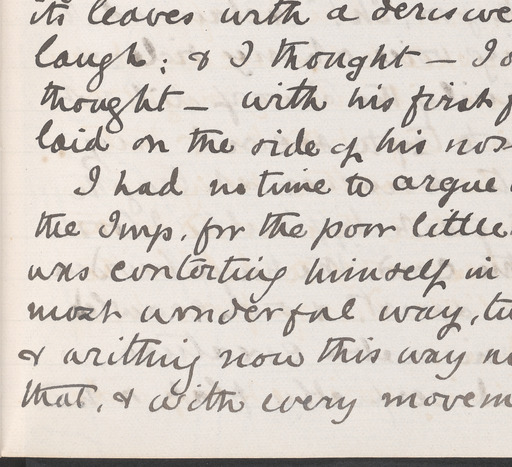 its leaves with a derisive
laugh; & I thought — I
thought — with his first
laid on the side of his nos
I had no time to argue
the Imp, for the poor little
was contorting himself in
most wonderful way, tu
& writhing now this way n
that, & with every movem